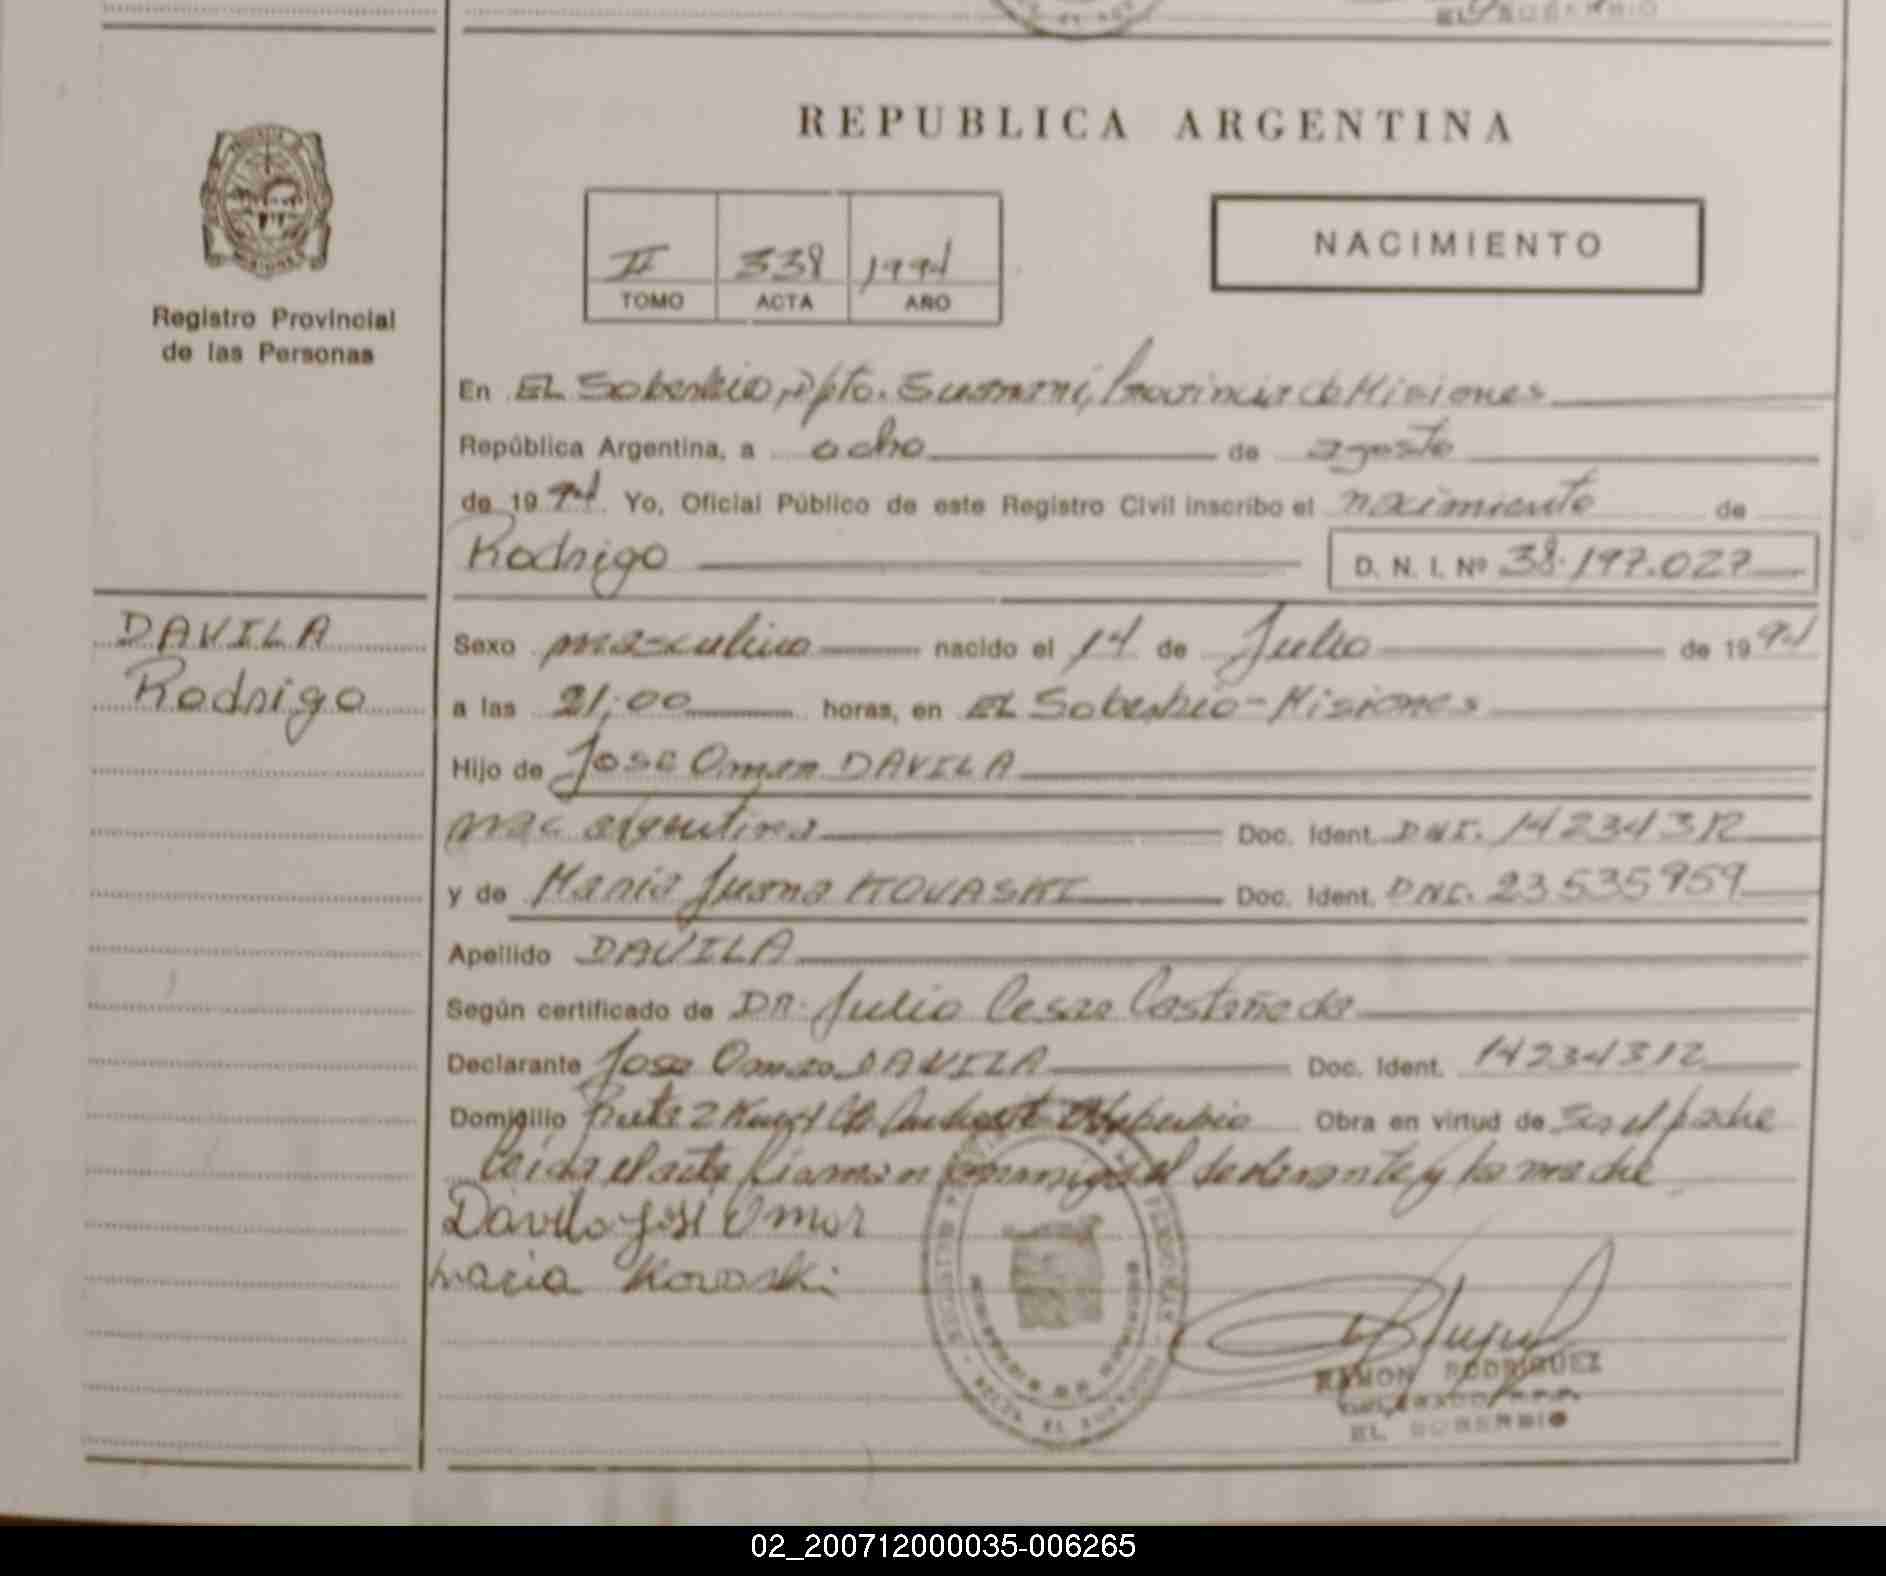 REPUBLICA ARGENTINA
II 338 1994
TOMO ACTA AÑO
NACIMIENTO
Registro Provincial
de las Personas
En EL Soberbio, Dpto. Guaraní, Provincia de Misiones
República Argentina, a ocho de agosto
de 1994. Yo, Oficial Público de este Registro Civil inscribo el nacimiento de
Rodrigo D. N. I. Nº 38.197.027
DAVILA
Rodrigo
Sexo masculino nacido el 14 de Julio de 1994
a las 21:00 horas, en EL Soberbio - Misiones
Hijo de Jose Omar DAVILA
nac. argentina Doc. Ident. DNI. 14234312
y de Maria Juana KOVASKI Doc. Ident. DNI. 23535959
Apellido DAVILA
Según certificado de DR. Julio Cesar Castañeda
Declarante Jose Omar DAVILA Doc. Ident. 14234312
Domicilio Ruta 2 El Soberbio Obra en virtud de ser el padre
Leida el acta firman conmigo el declarante y la madre
Davila José Omar
Maria Kovaski
RAMON RODRIGUEZ
EL SOBERBIO
02_200712000035-006265